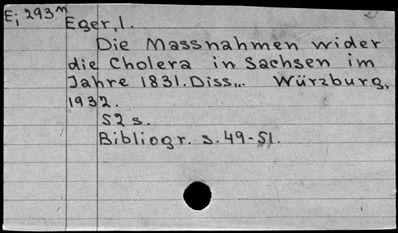 E; 293m
Eger, I.
Die Massnahmen wider
die Cholera in Sachsen im
Jahre 1831. Diss... Würzburg,
1932.
52 s.
Bibliogr. s. 49-51.